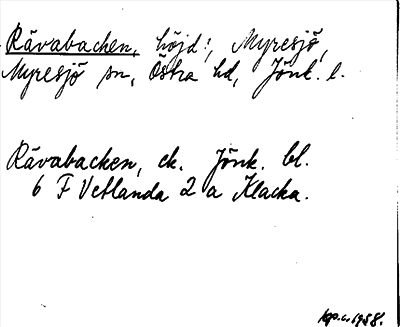 Rävabacken, höjd!, Myresjö,
Myresjö sn, Östra hd, Jönk. l.
Rävabacken, ek. Jönk. bl.
6 F Vetlanda 2 a Klacka.
1958.